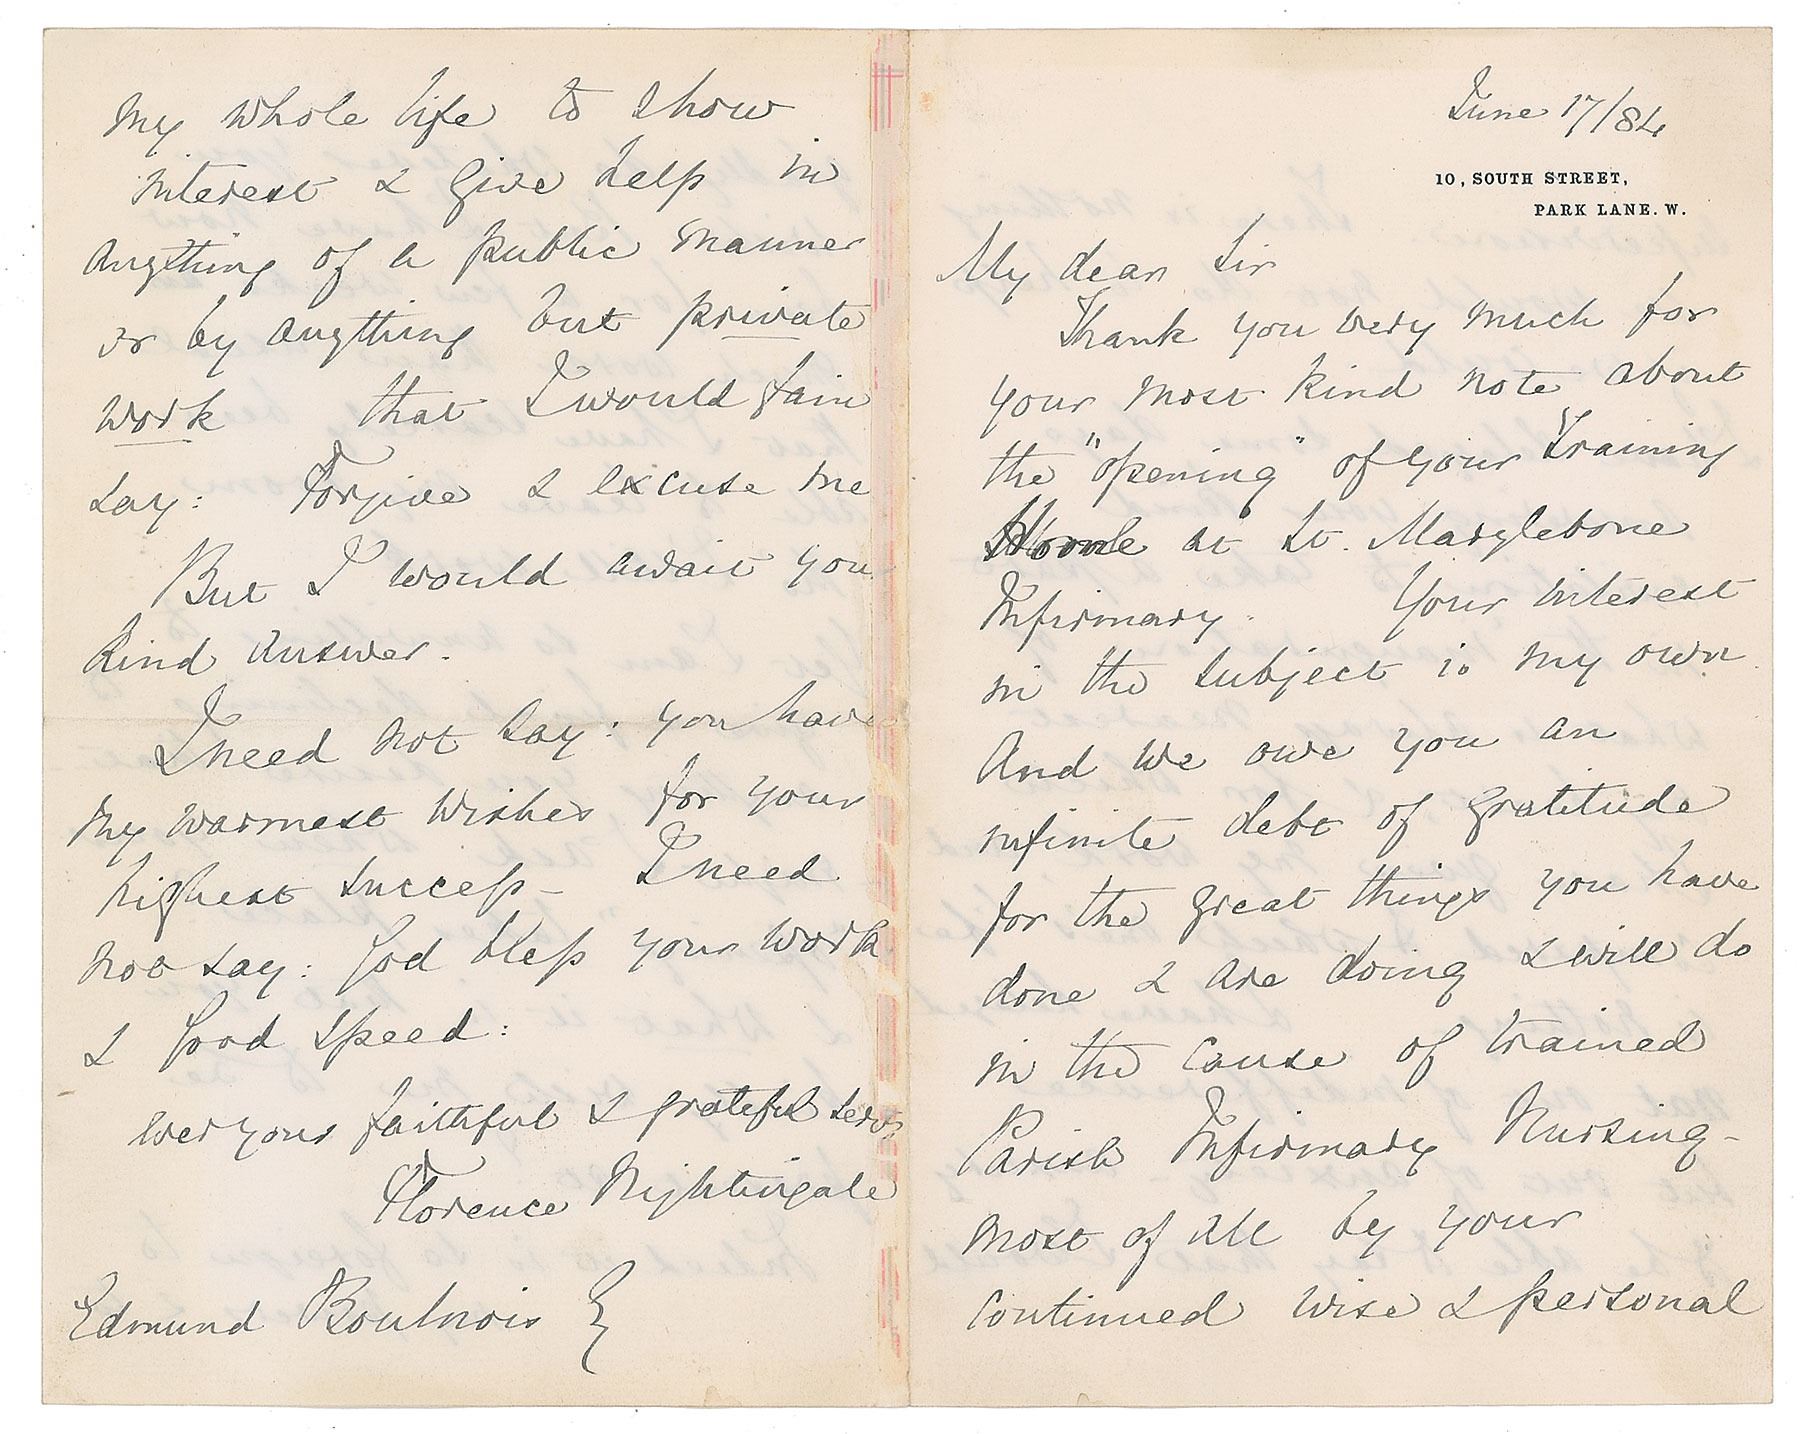 June 17/84
10, SOUTH STREET,
PARK LANE. W.
My dear Sir
Thank you very much for
your most kind note about
the "opening" of your Training
Home at St. Marylebone
Infirmary. Your interest
in the subject is my own.
And we owe you an
infinite debt of gratitude
for the great things you have
done & are doing & will do
in the cause of trained
Parish Infirmary Nursing -
most of all by your
continued wise & personal
my whole life to show
interest & give help in
anything of a public manner
or by anything but private
work that I would fain
say: Forgive & excuse me
But I would await your
kind answer.
I need not say: you have
my warmest wishes for your
highest success - I need
not say: God bless your work
& Good speed:
ever your faithful & grateful servt
Florence Nightingale
Edmund Boulnois Esq